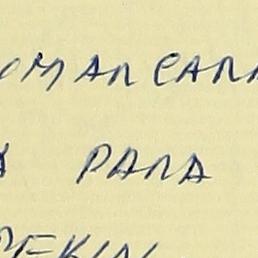 OMAR CARR
A PARA
PEKIN